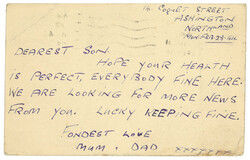 14. COQUET STREET
ASHINGTON
NORTHLAND
DEAREST SON.
HOPE YOUR HEALTH
IS PERFECT, EVERYBODY FINE HERE.
WE ARE LOOKING FOR MORE NEWS
FROM YOU. LUCKY KEEPING FINE.
FONDEST LOVE
MUM, DAD. XXXXXXX